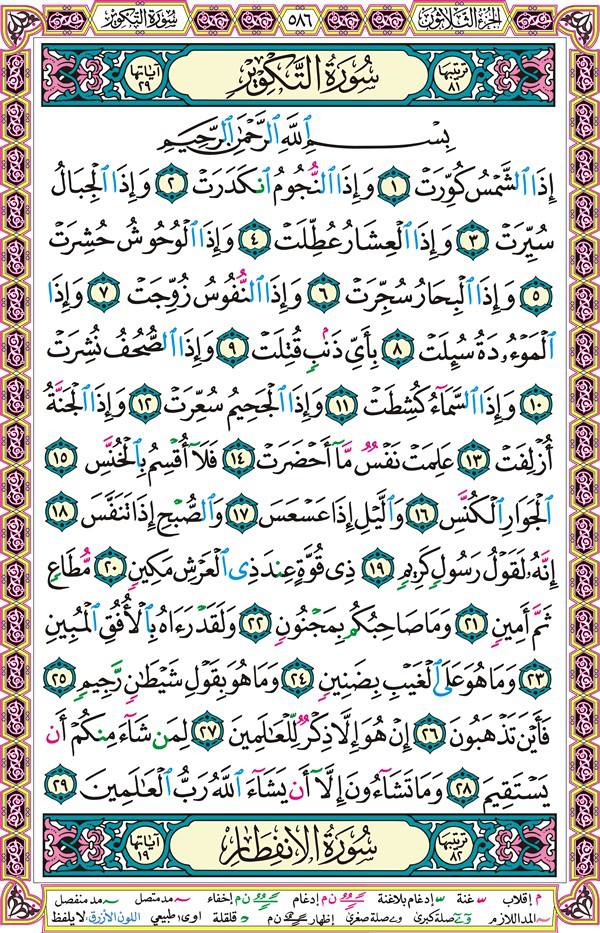 الجزء الثلاثون ٥٨٦ سورة التكوير
ترتيبها ٨١ سُورَةُ التَّكْوِيرِ آياتها ٢٩
بِسْمِ ٱللَّهِ ٱلرَّحْمَٰنِ ٱلرَّحِيمِ
إِذَا ٱلشَّمْسُ كُوِّرَتْ ١ وَإِذَا ٱلنُّجُومُ ٱنكَدَرَتْ ٢ وَإِذَا ٱلْجِبَالُ
سُيِّرَتْ ٣ وَإِذَا ٱلْعِشَارُ عُطِّلَتْ ٤ وَإِذَا ٱلْوُحُوشُ حُشِرَتْ
٥ وَإِذَا ٱلْبِحَارُ سُجِّرَتْ ٦ وَإِذَا ٱلنُّفُوسُ زُوِّجَتْ ٧ وَإِذَا
ٱلْمَوْءُۥدَةُ سُئِلَتْ ٨ بِأَيِّ ذَنۢبٍ قُتِلَتْ ٩ وَإِذَا ٱلصُّحُفُ نُشِرَتْ
١٠ وَإِذَا ٱلسَّمَآءُ كُشِطَتْ ١١ وَإِذَا ٱلْجَحِيمُ سُعِّرَتْ ١٢ وَإِذَا ٱلْجَنَّةُ
أُزْلِفَتْ ١٣ عَلِمَتْ نَفْسٌ مَّآ أَحْضَرَتْ ١٤ فَلَآ أُقْسِمُ بِٱلْخُنَّسِ ١٥
ٱلْجَوَارِ ٱلْكُنَّسِ ١٦ وَٱلَّيْلِ إِذَا عَسْعَسَ ١٧ وَٱلصُّبْحِ إِذَا تَنَفَّسَ ١٨
إِنَّهُۥ لَقَوْلُ رَسُولٍ كَرِيمٍ ١٩ ذِى قُوَّةٍ عِندَ ذِى ٱلْعَرْشِ مَكِينٍ ٢٠ مُّطَاعٍ
ثَمَّ أَمِينٍ ٢١ وَمَا صَاحِبُكُم بِمَجْنُونٍ ٢٢ وَلَقَدْ رَءَاهُ بِٱلْأُفُقِ ٱلْمُبِينِ
٢٣ وَمَا هُوَ عَلَى ٱلْغَيْبِ بِضَنِينٍ ٢٤ وَمَا هُوَ بِقَوْلِ شَيْطَٰنٍ رَّجِيمٍ ٢٥
فَأَيْنَ تَذْهَبُونَ ٢٦ إِنْ هُوَ إِلَّا ذِكْرٌ لِّلْعَٰلَمِينَ ٢٧ لِمَن شَآءَ مِنكُمْ أَن
يَسْتَقِيمَ ٢٨ وَمَا تَشَآءُونَ إِلَّآ أَن يَشَآءَ ٱللَّهُ رَبُّ ٱلْعَٰلَمِينَ ٢٩
ترتيبها ٨٢ سُورَةُ الانفِطَارِ آياتها ١٩
م إقلاب غنة إدغام بلاغنة ن م إدغام ن م إخفاء مد متصل مد منفصل
المد اللازم صلة كبرى صلة صغرى إظهار ن م قلقلة اوى؛ طبيعي اللون الأزرق: لا يلفظ